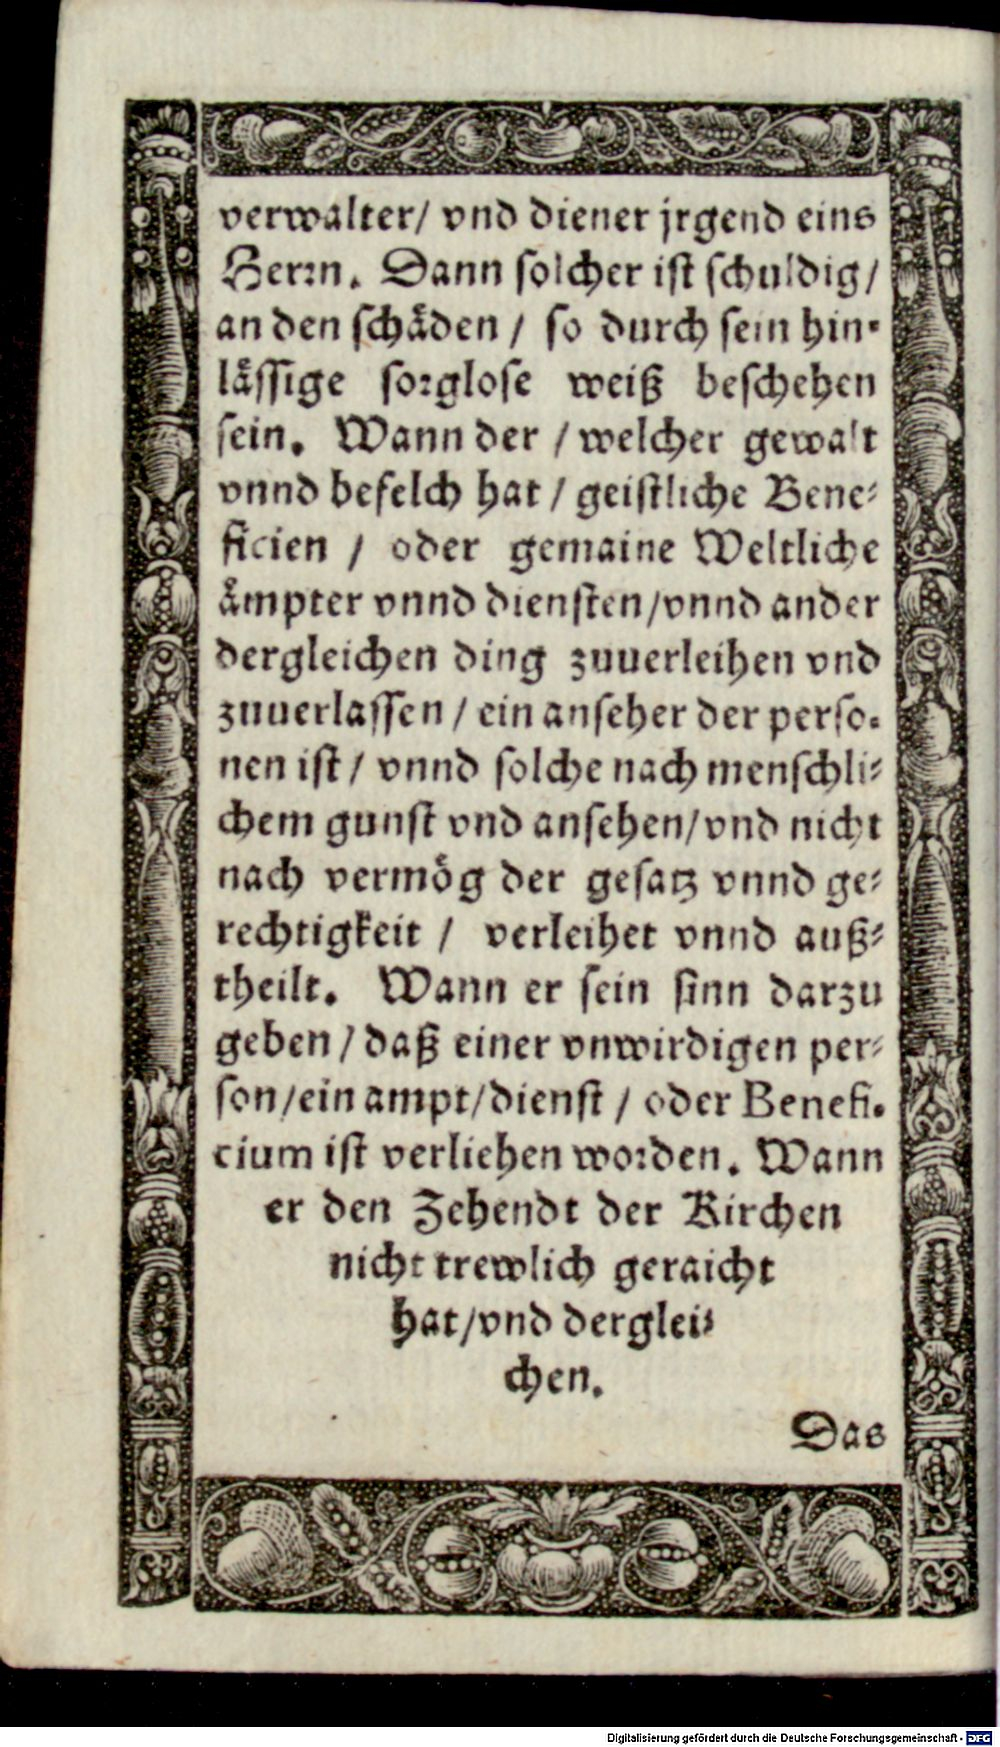 verwalter/ vnd diener jrgend eins
Herrn. Dann solcher ist schuldig/
an den schåden / so durch sein hin-
låssige sorglose weiß beschehen
sein. Wann der / welcher gewalt
vnnd befelch hat / geistliche Bene-
ficien / oder gemaine Weltliche
åmpter vnnd diensten/vnnd ander
dergleichen ding zuuerleihen vnd
zuuerlassen / ein anseher der perso-
nen ist/ vnnd solche nach menschli-
chem gunst vnd ansehen/vnd nicht
nach vermôg der gesatz vnnd ge-
rechtigkeit / verleihet vnnd auß-
theilt. Wann er sein sinn darzu
geben / daß einer vnwirdigen per-
son/ein ampt/dienst / oder Benefi-
cium ist verliehen worden. Wann
er den Zehendt der Kirchen
nicht trewlich geraicht
hat/vnd derglei-
chen.
Das
Digitalisierung gefördert durch die Deutsche Forschungsgemeinschaft - DFG